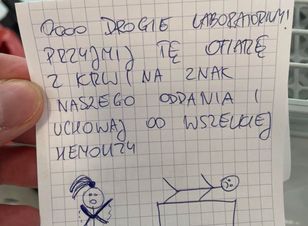 OOOO DROGIE LABORATORIUM!
PRZYJMIJ TĘ OFIARĘ
Z KRWI NA ZNAK
NASZEGO ODDANIA I
UCHOWAJ OD WSZELKIEJ
HEMOLIZY